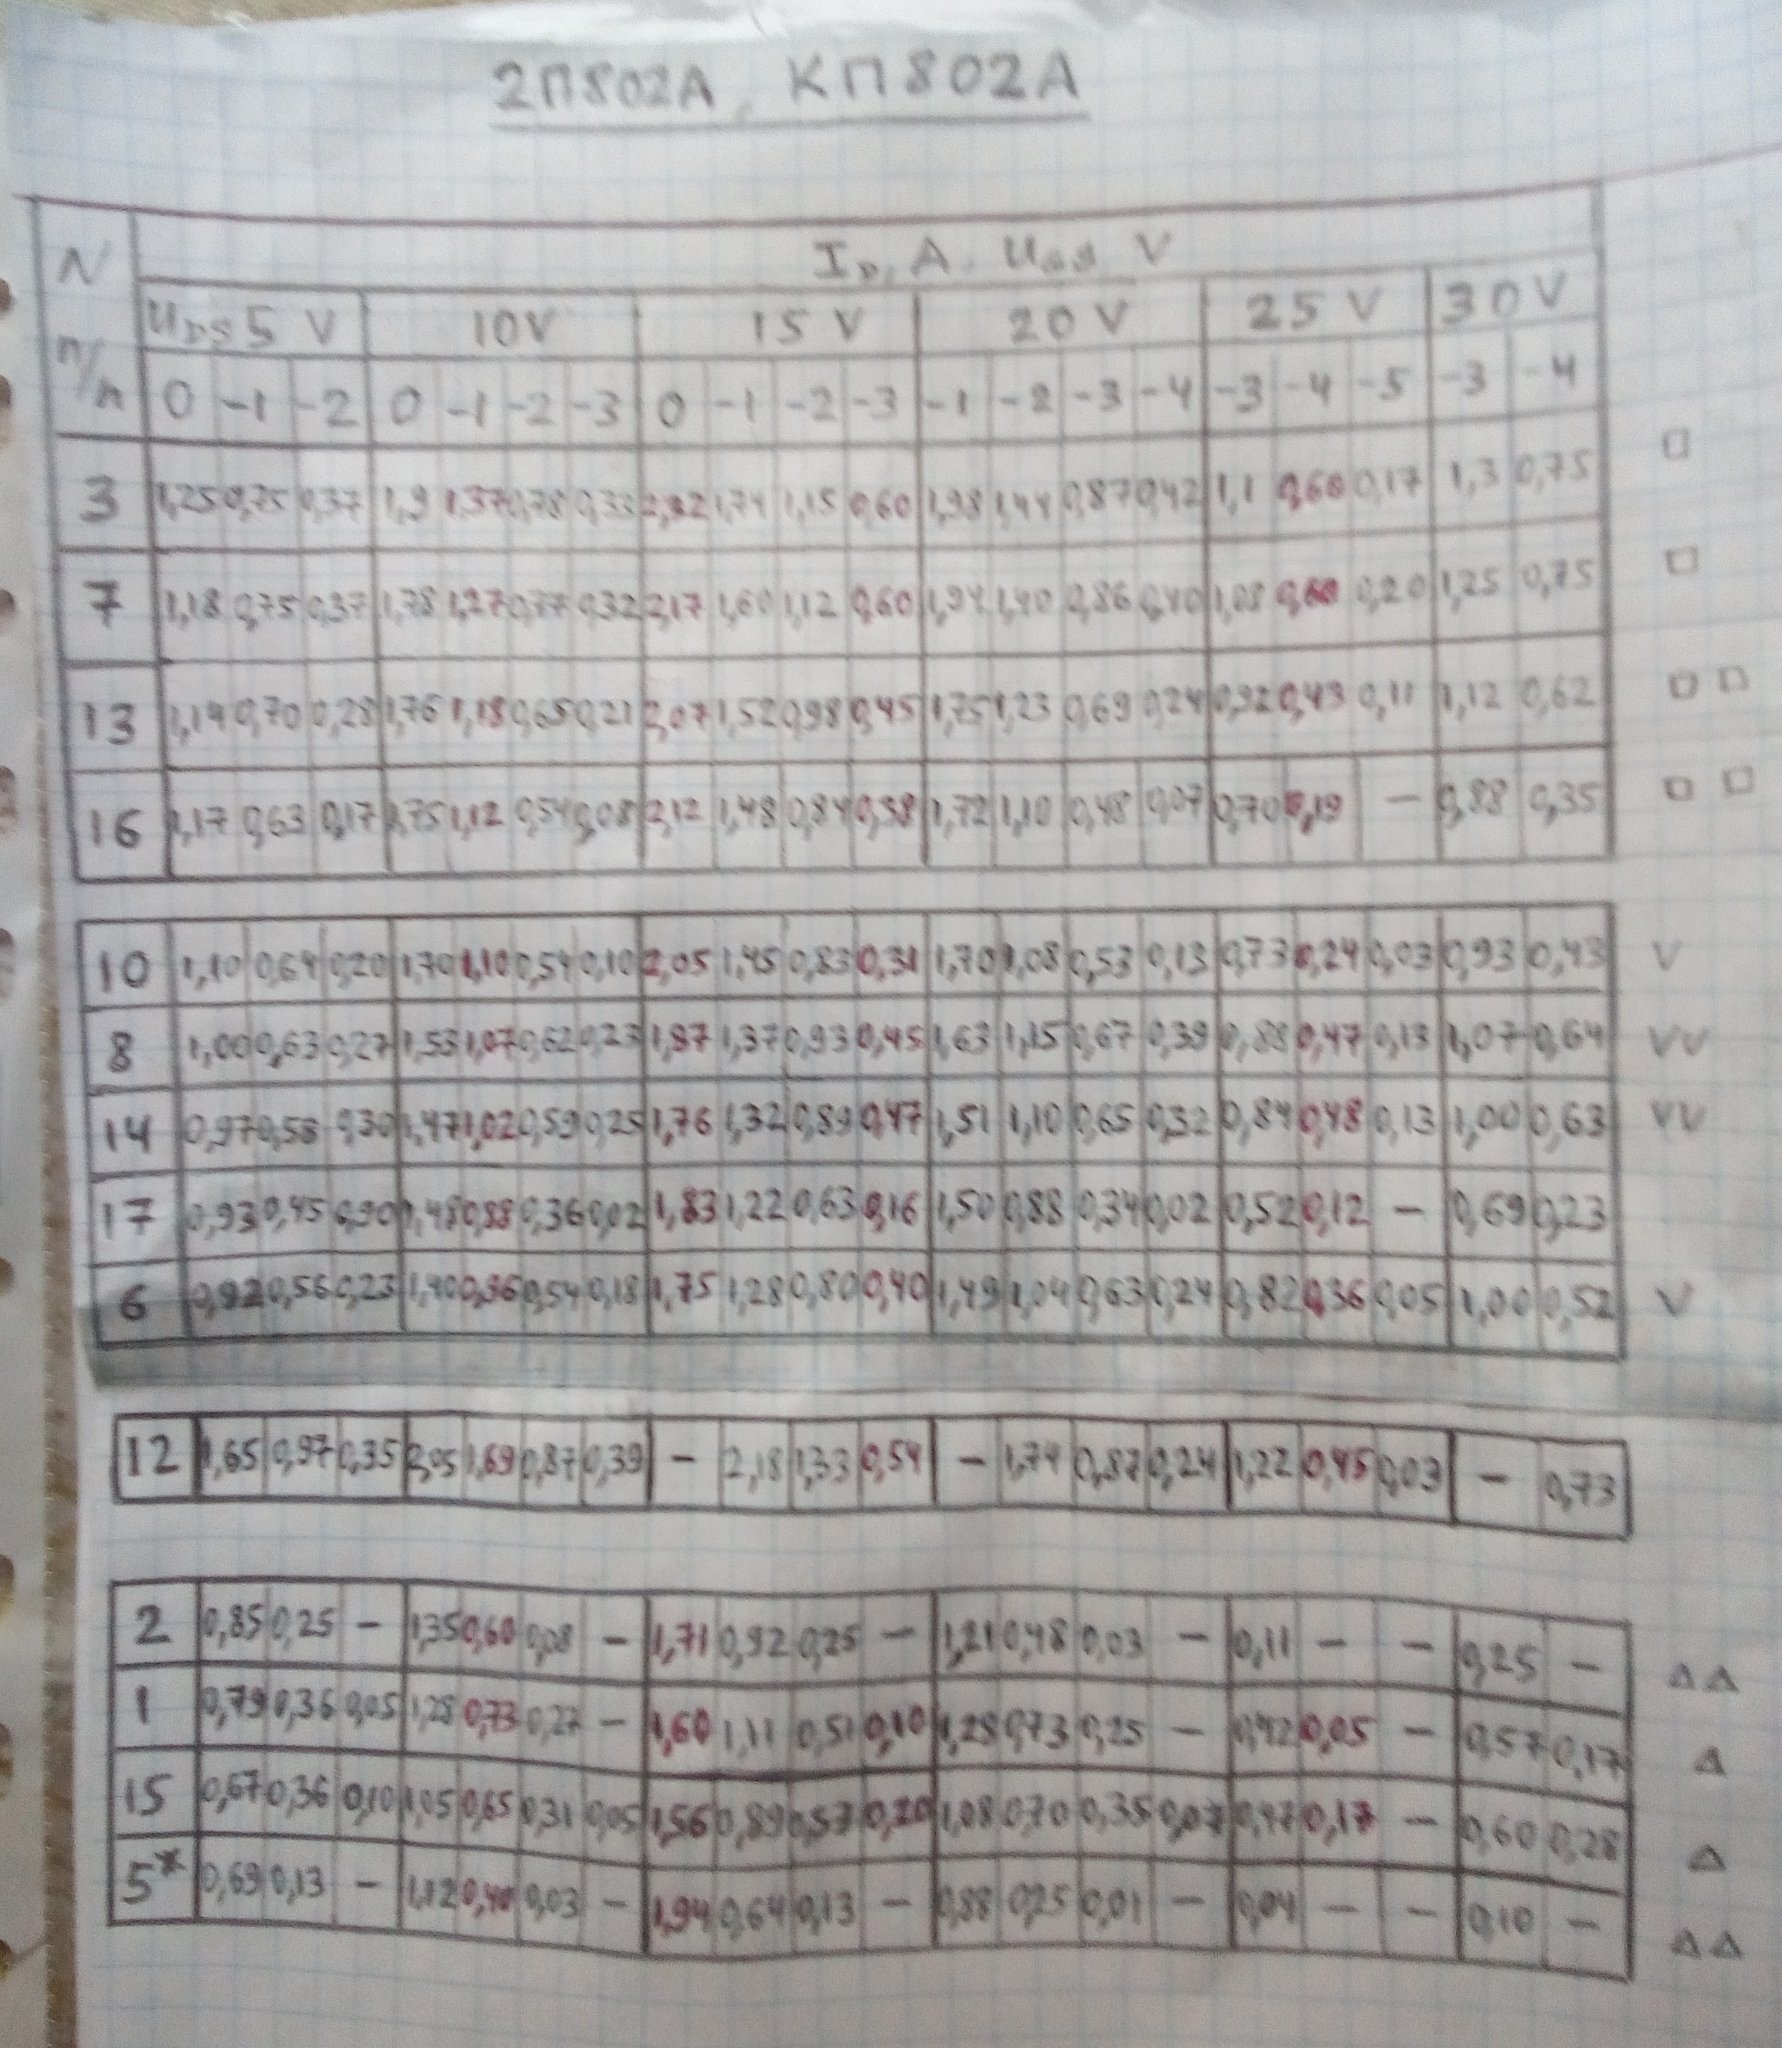 2П802А, КП802А
N п/п
I_D, A. U_GS, V
U_DS 5 V 10V 15 V 20 V 25 V 30 V
0 -1 -2 0 -1 -2 -3 0 -1 -2 -3 -1 -2 -3 -4 -3 -4 -5 -3 -4
3 1,25 0,75 0,37 1,9 1,37 0,78 0,33 2,32 1,74 1,15 0,60 1,98 1,44 0,87 0,42 1,1 0,60 0,17 1,3 0,75 □
7 1,18 0,75 0,37 1,78 1,27 0,77 0,32 2,17 1,60 1,12 0,60 1,94 1,40 0,86 0,40 1,08 0,60 0,20 1,25 0,75 □
13 1,19 0,70 0,28 1,76 1,18 0,65 0,21 2,07 1,52 0,98 0,45 1,75 1,23 0,69 0,24 0,92 0,43 0,11 1,12 0,62 □ □
16 1,17 0,63 0,17 1,75 1,12 0,54 0,08 2,12 1,48 0,84 0,38 1,72 1,10 0,48 0,07 0,70 0,19 - 0,88 0,35 □ □
10 1,10 0,64 0,20 1,70 1,10 0,54 0,10 2,05 1,45 0,83 0,31 1,70 1,08 0,53 0,13 0,73 0,24 0,03 0,93 0,43 V
8 1,00 0,63 0,27 1,53 1,07 0,62 0,23 1,87 1,37 0,93 0,45 1,63 1,15 0,67 0,39 0,88 0,47 0,13 1,07 0,64 VV
14 0,97 0,58 0,30 1,47 1,02 0,59 0,25 1,76 1,32 0,89 0,47 1,51 1,10 0,65 0,32 0,84 0,48 0,13 1,00 0,63 VV
17 0,93 0,45 0,90 1,48 0,88 0,36 0,02 1,83 1,22 0,63 0,16 1,50 0,88 0,34 0,02 0,52 0,12 - 0,69 0,23
6 0,92 0,56 0,23 1,40 0,96 0,54 0,18 1,75 1,28 0,80 0,40 1,49 1,04 0,63 0,24 0,82 0,36 0,05 1,00 0,52 V
12 1,65 0,97 0,35 2,05 1,69 0,87 0,39 - 2,18 1,33 0,54 - 1,74 0,87 0,24 1,22 0,45 0,03 - 0,73
2 0,85 0,25 - 1,35 0,60 0,08 - 1,71 0,92 0,25 - 1,21 0,48 0,03 - 0,11 - - 0,25 - ΔΔ
1 0,79 0,36 0,05 1,28 0,73 0,27 - 1,60 1,11 0,51 0,10 1,28 0,73 0,25 - 0,42 0,05 - 0,57 0,17 Δ
15 0,67 0,36 0,10 1,05 0,65 0,31 0,05 1,56 0,89 0,57 0,20 1,08 0,70 0,35 0,07 0,47 0,17 - 0,60 0,28 Δ
5* 0,69 0,13 - 1,12 0,40 0,03 - 1,94 0,64 0,13 - 0,88 0,25 0,01 - 0,04 - - 0,10 - ΔΔ